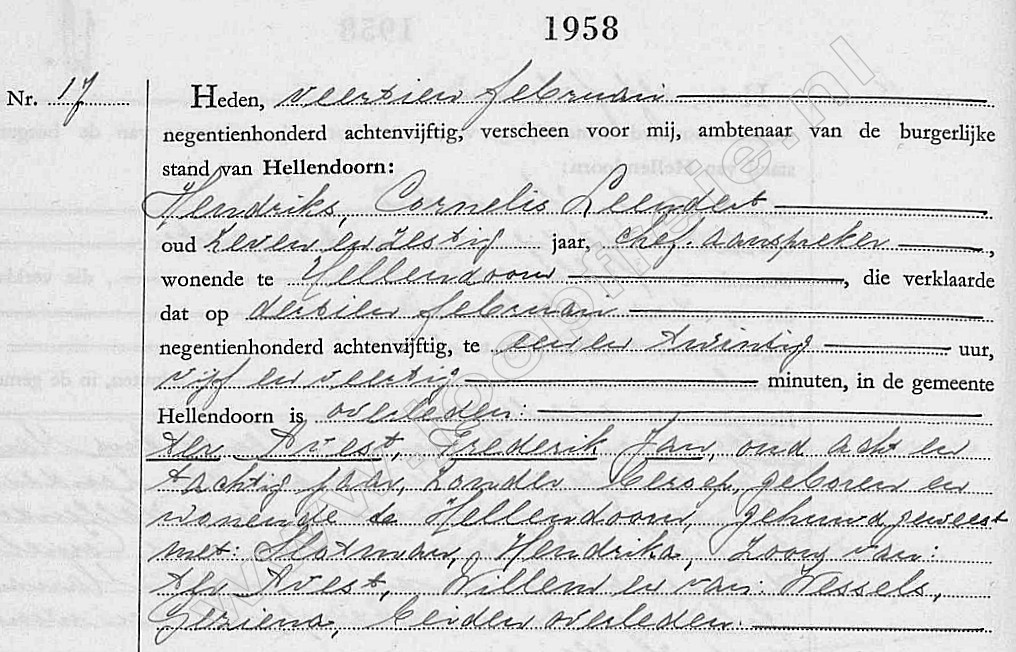 1958
Nr. 17
Heden, veertien februari
negentienhonderd achtenvijftig, verscheen voor mij, ambtenaar van de burgerlijke
stand van Hellendoorn:
Hendriks, Cornelis Leendert
oud zeven en zestig jaar, chef-aanspreker,
wonende te Hellendoorn, die verklaarde
dat op dertien februari
negentienhonderd achtenvijftig, te een en twintig uur,
vijf en veertig minuten, in de gemeente
Hellendoorn is overleden:
ter Avest, Frederik Jan, oud acht en
tachtig jaar, zonder beroep, geboren en
wonende te Hellendoorn, gehuwd geweest
met: Slotman, Hendrika, zoon van:
ter Avest, Willem en van: Wessels,
Geziena, beiden overleden.